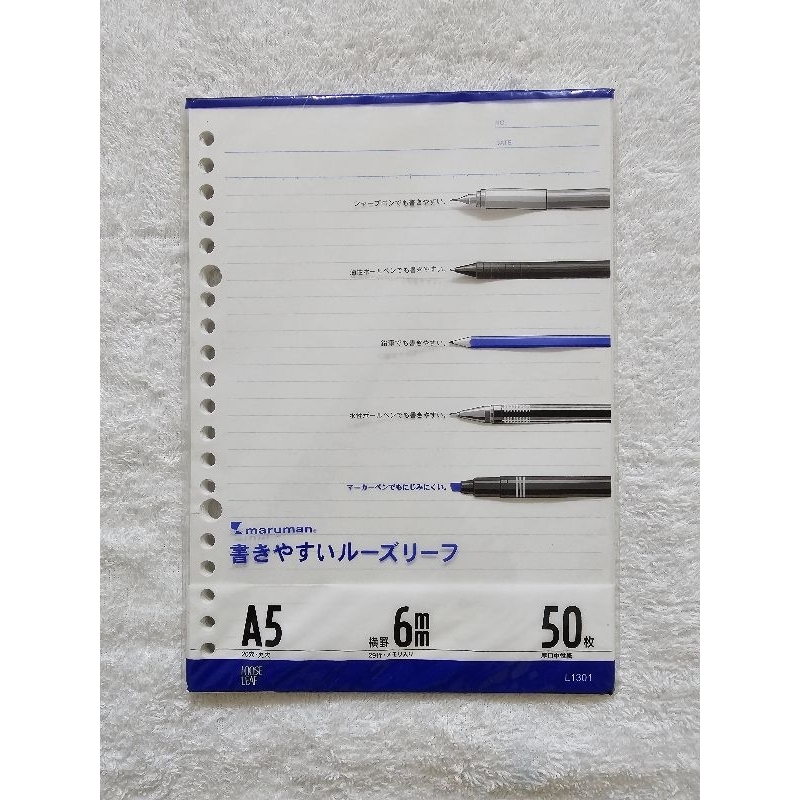 NO.
DATE
シャープペンでも書きやすい。
油性ボールペンでも書きやすい。
鉛筆でも書きやすい。
水性ボールペンでも書きやすい。
マーカーペンでもにじみにくい。
maruman®
書きやすいルーズリーフ
A5 横罫 6mm 50枚
20穴・丸穴 29行・メモリ入り 厚口中性紙
LOOSE
LEAF
L1301